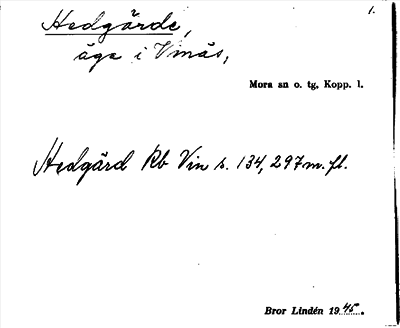 Hedgärde, 1.
äga i Vinäs,
Mora sn o. tg, Kopp. l.
Hedgärd Rb Vin s. 134, 297 m. fl.
Bror Lindén 1945.